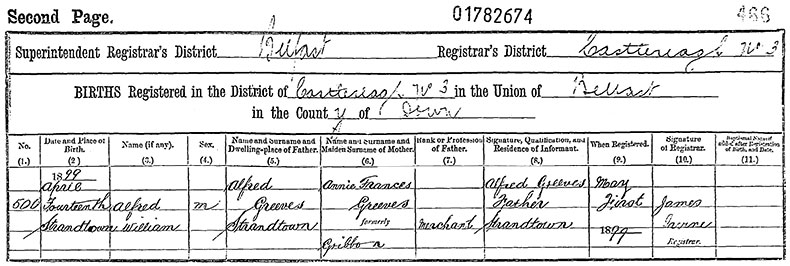 Second Page. 01782674 466
Superintendent Registrar's District Belfast Registrar's District Castlereagh No 3
BIRTHS Registered in the District of Castlereagh No 3 in the Union of Belfast
in the County of Down
No. Date and Place of Birth. Name (if any). Sex. Name and Surname and Dwelling-place of Father. Name and Surname and Maiden Surname of Mother. Rank or Profession of Father. Signature, Qualification, and Residence of Informant. When Registered. Signature of Registrar. Baptismal Name, if added after Registration of Birth, and Date.
(1.) (2) (3.) (4.) (5.) (6.) (7.) (8.) (9.) (10.) (11.)
1899
April Alfred Annie Frances Alfred Greeves May
500 Fourteenth Alfred m Greeves Greeves Father First James
Strandtown William Strandtown formerly Merchant Strandtown 1899 Irvine
Gribbon Registrar.